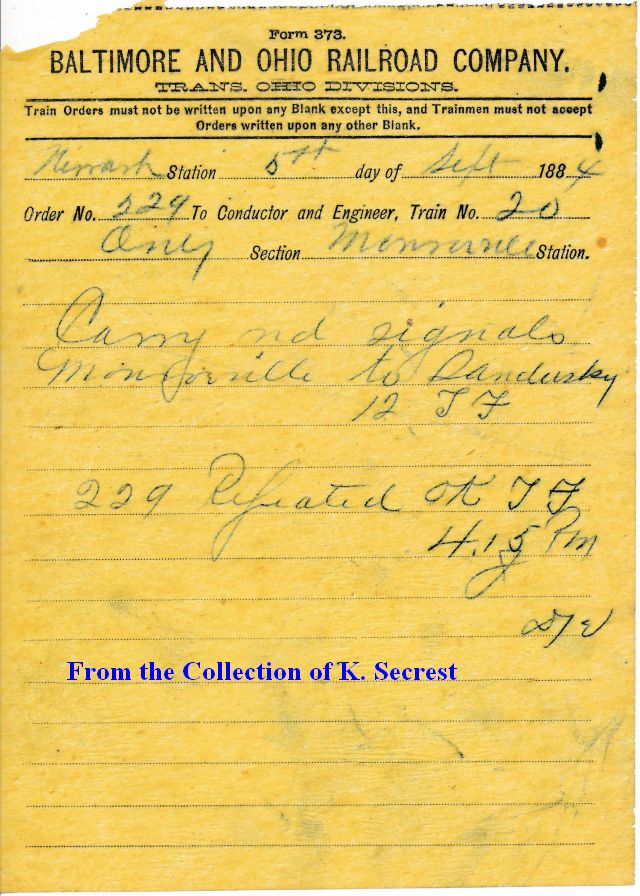 Form 373.
BALTIMORE AND OHIO RAILROAD COMPANY.
TRANS. OHIO DIVISIONS.
Train Orders must not be written upon any Blank except this, and Trainmen must not accept
Orders written upon any other Blank.
Newark Station 5th day of Sept 1884
Order No. 229 To Conductor and Engineer, Train No. 20
Only Section Monroeville Station.
Carry red signals
Monroeville to Sandusky
12 J F
229 Repeated OK J F
4.15 Pm
From the Collection of K. Secrest